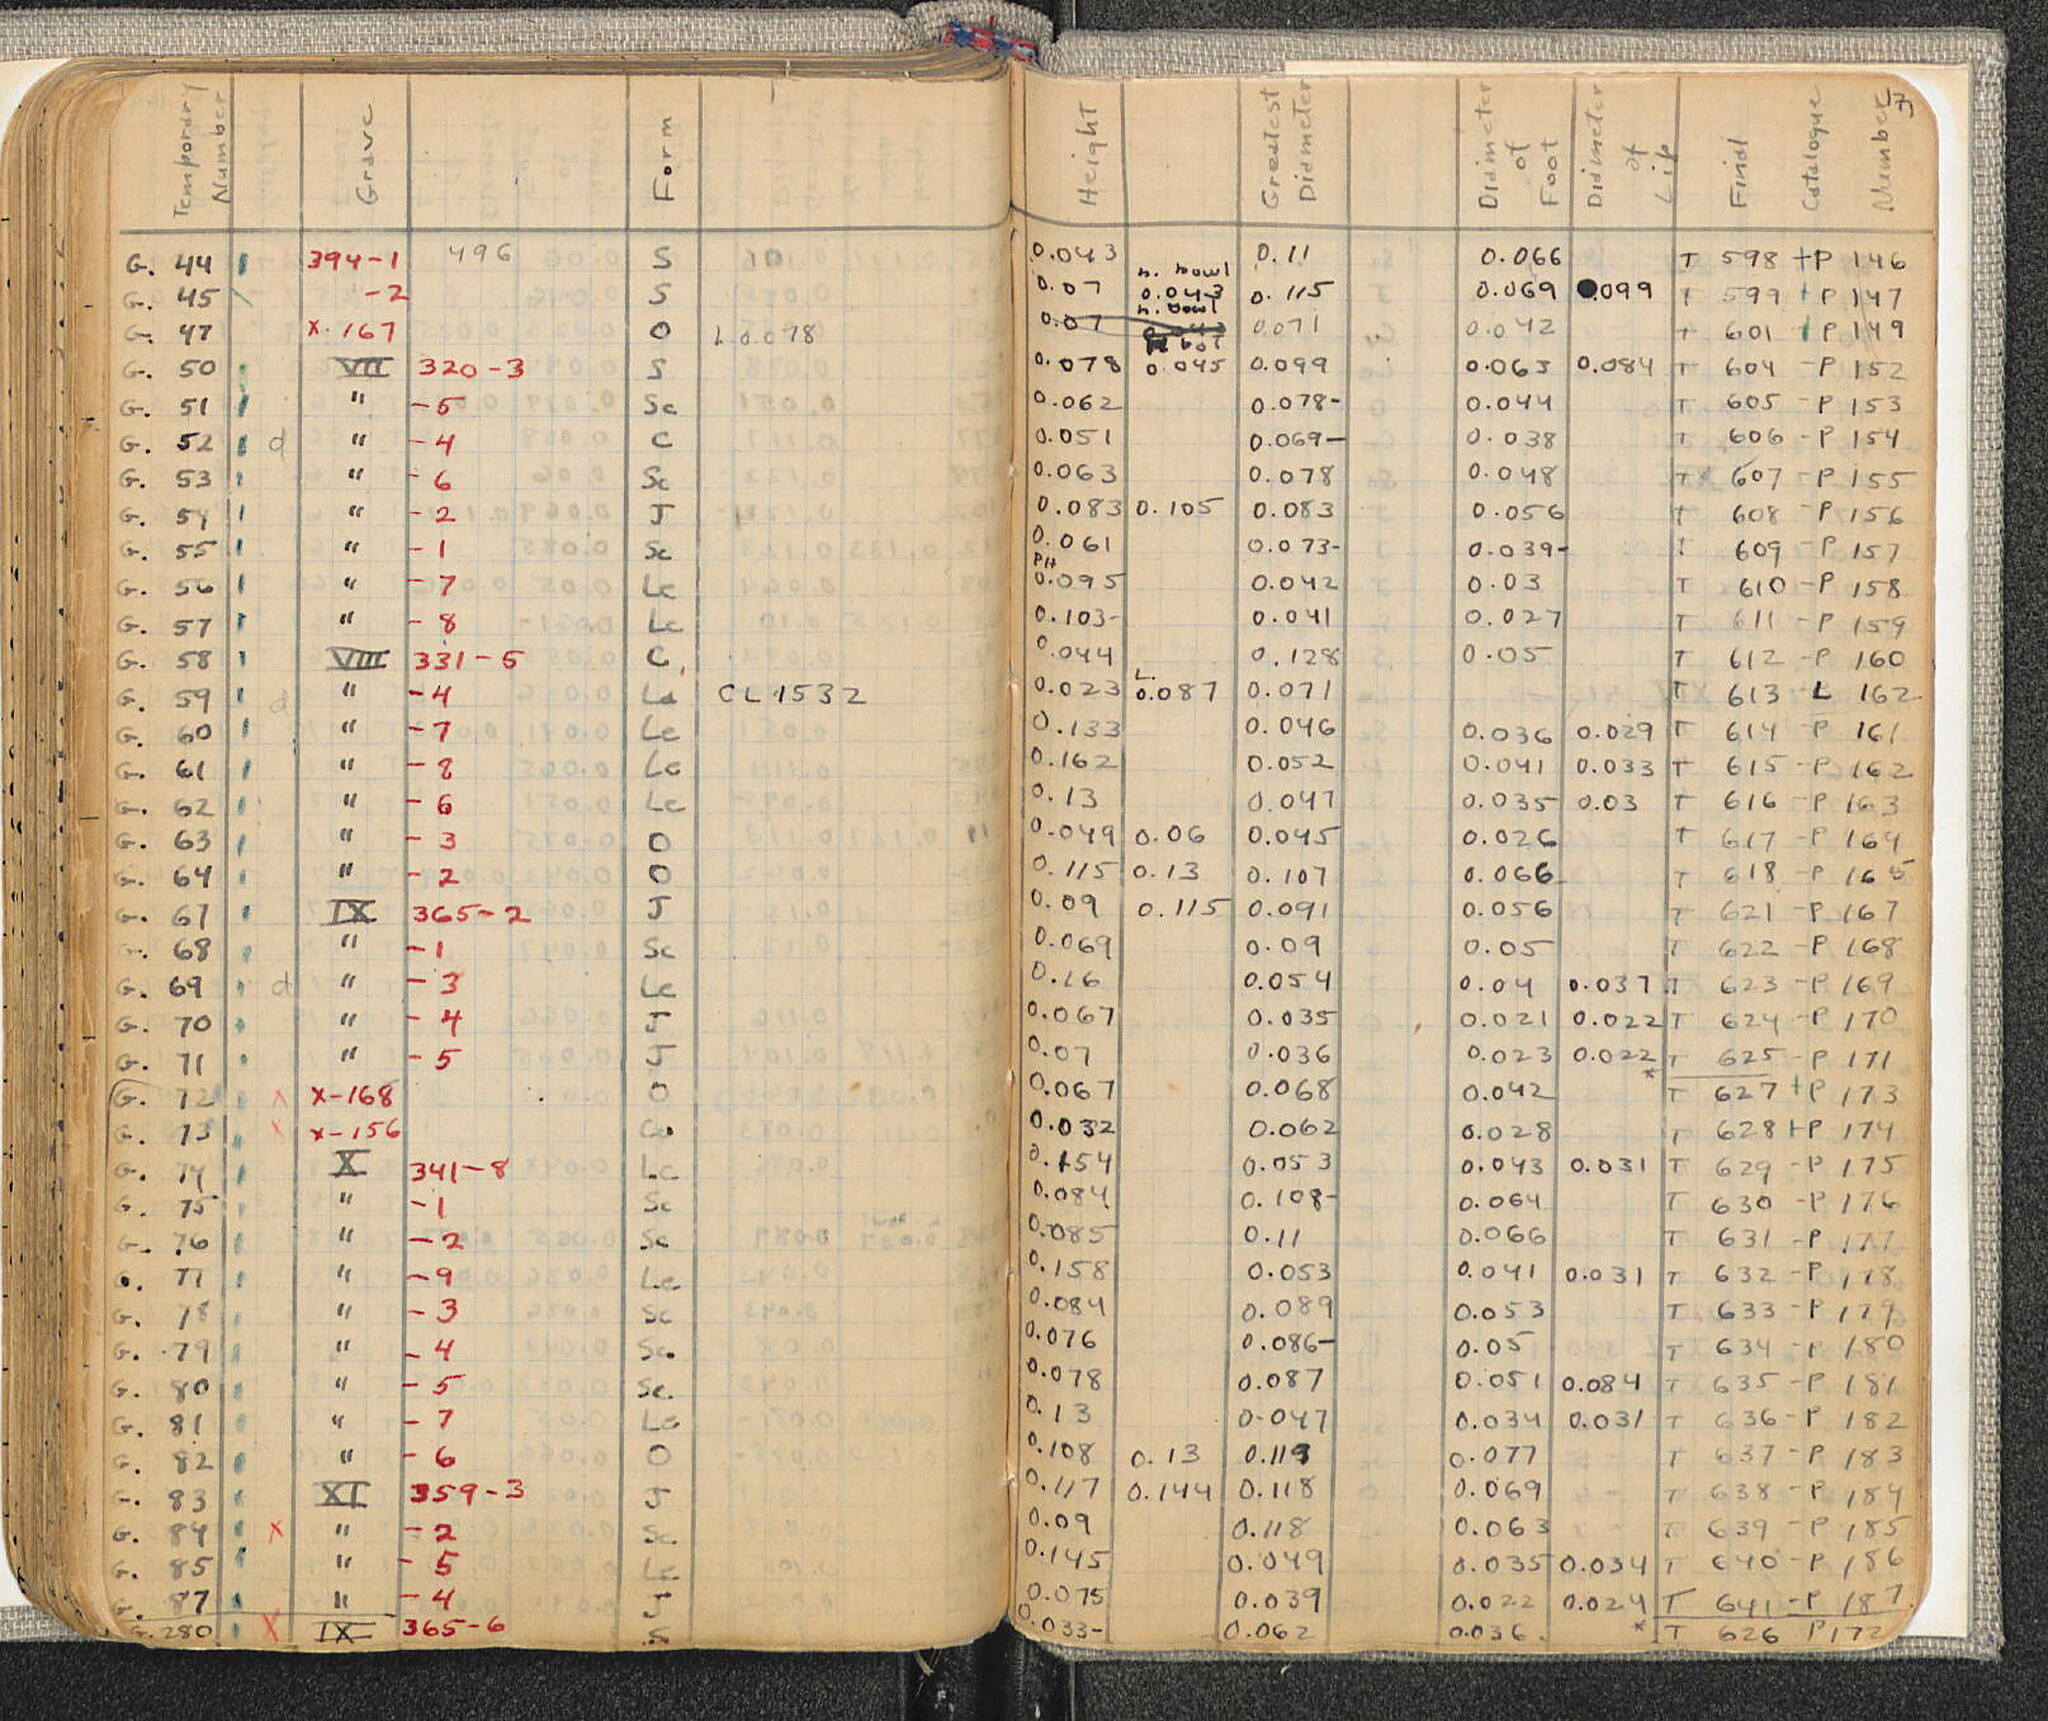 Temporary Number Grave Form Height Greatest Diameter Diameter of Foot Diameter of Lip Final Catalogue Number
G. 44 394-1 496 S 0.043 0.11 0.066 T 598 +P 146
G. 45 -2 S 0.07 h. bowl 0.043 0.115 0.069 0.099 T 599 +P 147
G. 47 x-167 O L 0.078 0.07 h. bowl 0.071 0.042 T 601 +P 149
G. 50 VII 320-3 S 0.078 0.045 0.099 0.063 0.084 T 604 -P 152
G. 51 " -5 Sc 0.062 0.078- 0.044 T 605 -P 153
G. 52 d " -4 C 0.051 0.069- 0.038 T 606 -P 154
G. 53 " -6 Sc 0.063 0.078 0.048 T 607 -P 155
G. 54 " -2 J 0.083 0.105 0.083 0.056 T 608 -P 156
G. 55 " -1 Sc 0.061 0.073- 0.039- T 609 -P 157
G. 56 " -7 Le PH 0.095 0.042 0.03 T 610 -P 158
G. 57 " -8 Le 0.103- 0.041 0.027 T 611 -P 159
G. 58 VIII 331-5 C 0.044 0.128 0.05 T 612 -P 160
G. 59 d " -4 La CL 1532 0.023 L. 0.087 0.071 T 613 -L 162
G. 60 " -7 Le 0.133 0.046 0.036 0.029 T 614 -P 161
G. 61 " -8 Le 0.162 0.052 0.041 0.033 T 615 -P 162
G. 62 " -6 Le 0.13 0.047 0.035 0.03 T 616 -P 163
G. 63 " -3 O 0.049 0.06 0.045 0.026 T 617 -P 164
G. 64 " -2 O 0.115 0.13 0.107 0.066 T 618 -P 165
G. 67 IX 365-2 J 0.09 0.115 0.091 0.056 T 621 -P 167
G. 68 " -1 Sc 0.069 0.09 0.05 T 622 -P 168
G. 69 d " -3 Le 0.16 0.054 0.04 0.037 T 623 -P 169
G. 70 " -4 J 0.067 0.035 0.021 0.022 T 624 -P 170
G. 71 " -5 J 0.07 0.036 0.023 0.022 T 625 -P 171
G. 72 x x-168 O 0.067 0.068 0.042 * T 627 +P 173
G. 73 x x-156 Co 0.032 0.062 0.028 T 628 +P 174
G. 74 X 341-8 Le 0.154 0.053 0.043 0.031 T 629 -P 175
G. 75 " -1 Sc 0.084 0.108- 0.064 T 630 -P 176
G. 76 " -2 Sc 0.085 0.11 0.066 T 631 -P 177
G. 77 " -9 Le 0.158 0.053 0.041 0.031 T 632 -P 178
G. 78 " -3 Sc 0.084 0.089 0.053 T 633 -P 179
G. 79 " -4 Sc. 0.076 0.086- 0.05 T 634 -P 180
G. 80 " -5 Sc. 0.078 0.087 0.051 0.084 T 635 -P 181
G. 81 " -7 Le 0.13 0.047 0.034 0.031 T 636 -P 182
G. 82 " -6 O 0.108 0.13 0.113 0.077 T 637 -P 183
G. 83 XI 359-3 J 0.117 0.144 0.118 0.069 T 638 -P 184
G. 84 x " -2 Sc. 0.09 0.118 0.063 T 639 -P 185
G. 85 " -5 Le 0.145 0.049 0.035 0.034 T 640 -P 186
G. 87 " -4 J 0.075 0.039 0.022 0.024 T 641 -P 187
G. 280 x IX 365-6 S 0.033- 0.062 0.036 * T 626 P 172